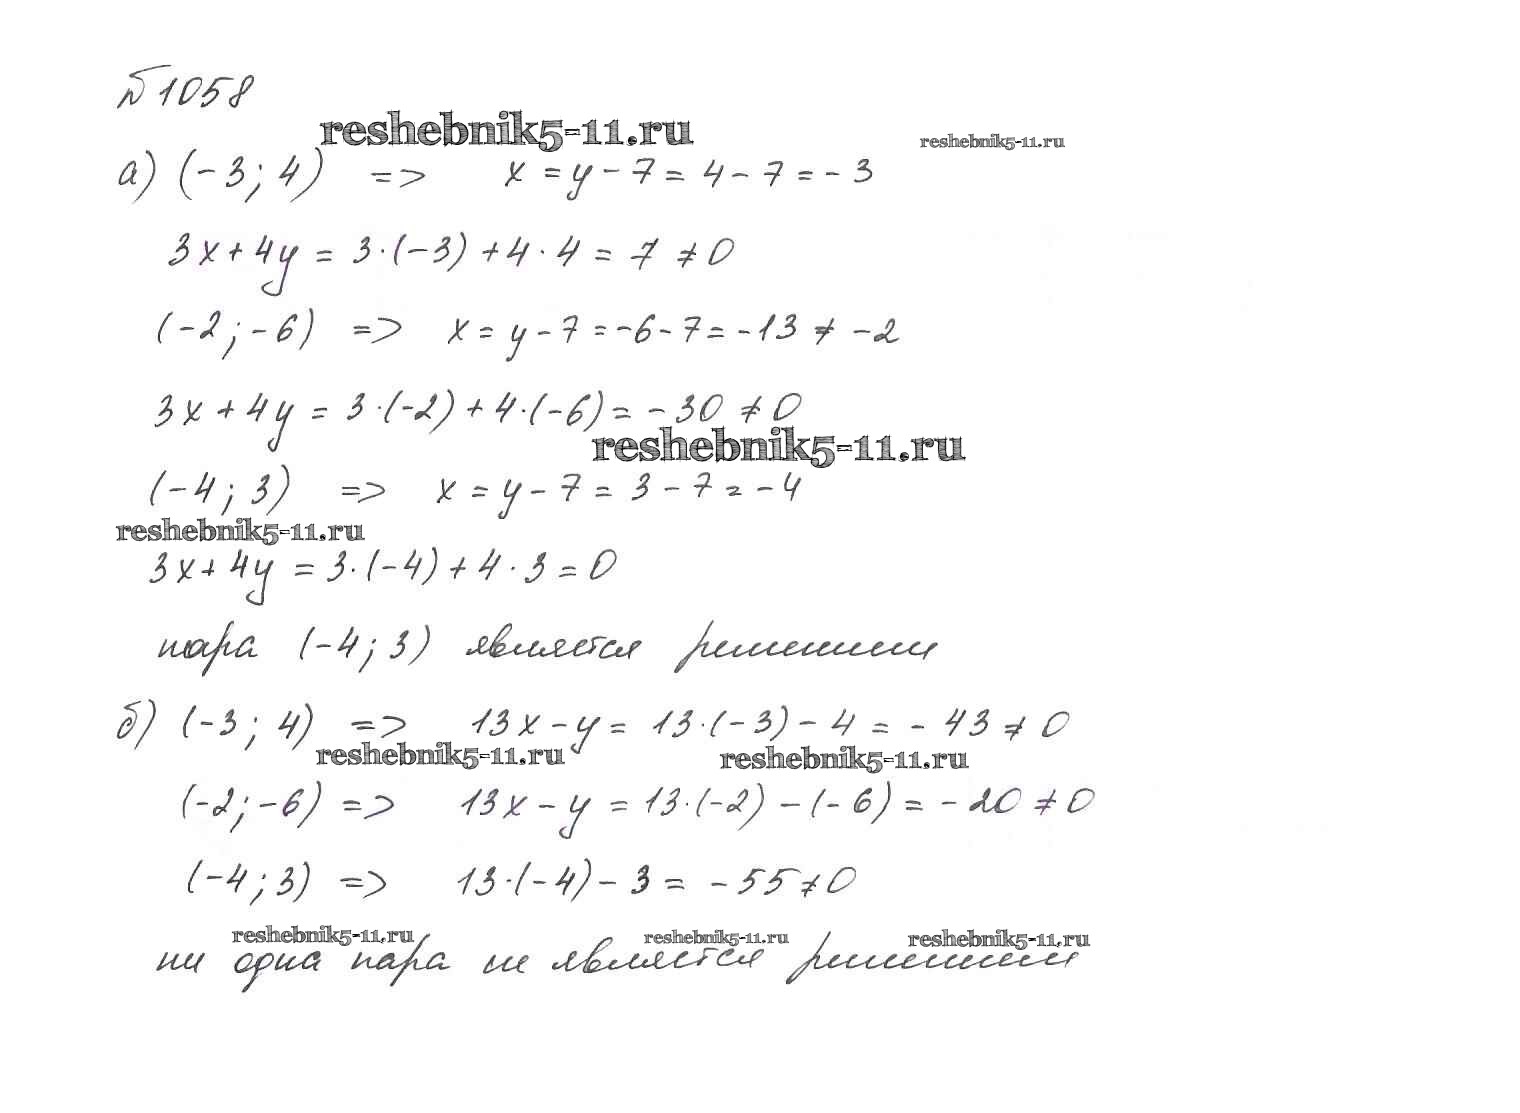 №1058
reshebnik5-11.ru
reshebnik5-11.ru
а) (-3; 4) => x = y - 7 = 4 - 7 = - 3
3x + 4y = 3·(-3) + 4·4 = 7 ≠ 0
(-2; -6) => x = y - 7 = -6 - 7 = -13 ≠ -2
3x + 4y = 3·(-2) + 4·(-6) = -30 ≠ 0
reshebnik5-11.ru
(-4; 3) => x = y - 7 = 3 - 7 = -4
reshebnik5-11.ru
3x + 4y = 3·(-4) + 4·3 = 0
пара (-4; 3) является решением
б) (-3; 4) => 13x - y = 13·(-3) - 4 = - 43 ≠ 0
reshebnik5-11.ru reshebnik5-11.ru
(-2; -6) => 13x - y = 13·(-2) - (-6) = - 20 ≠ 0
(-4; 3) => 13·(-4) - 3 = - 55 ≠ 0
reshebnik5-11.ru reshebnik5-11.ru reshebnik5-11.ru
ни одна пара не является решением